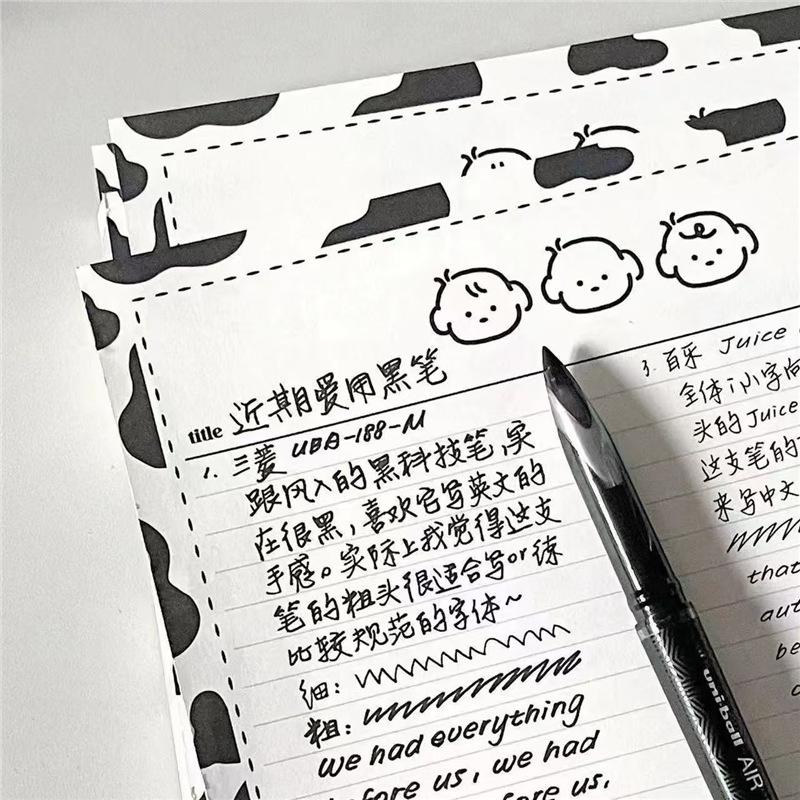 title 近期爱用黑笔
1. 三菱 UBA-188-M
跟风入的黑科技笔,实
在很黑,喜欢它写英文的
手感。实际上我觉得这支
笔的粗头很适合写or练
比较规范的字体~
细:
粗:
we had everything
before us, we had
before us,
3. 百乐 Juice
全体i小字向
头的Juice
这支笔的
来写中文
that
aut
be
uni-ball AIR